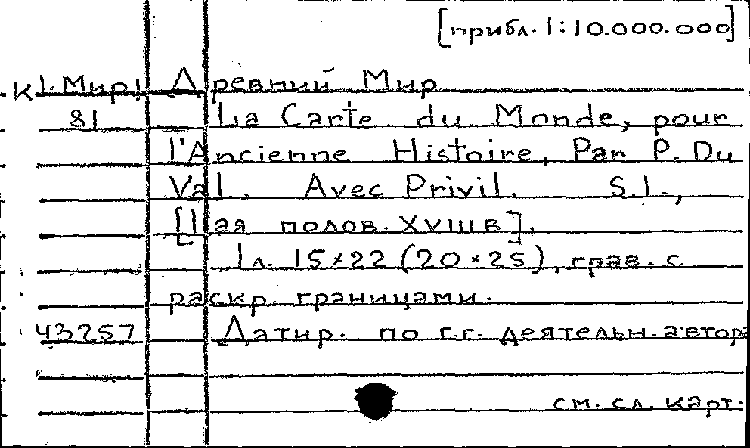 [прибл. 1:10.000.000]
К 1. Мир/ Древний Мир
81 La Carte du Monde, pour
l'Ancienne Histoire, Par P. Du
Val. Avec Privil. S.l.,
[1ая полов. XVIII в].
1 л. 15×22 (20×25), грав. с
раскр. границами.
43257 Датир. по г.г. деятельн. автора
см. сл. карт.